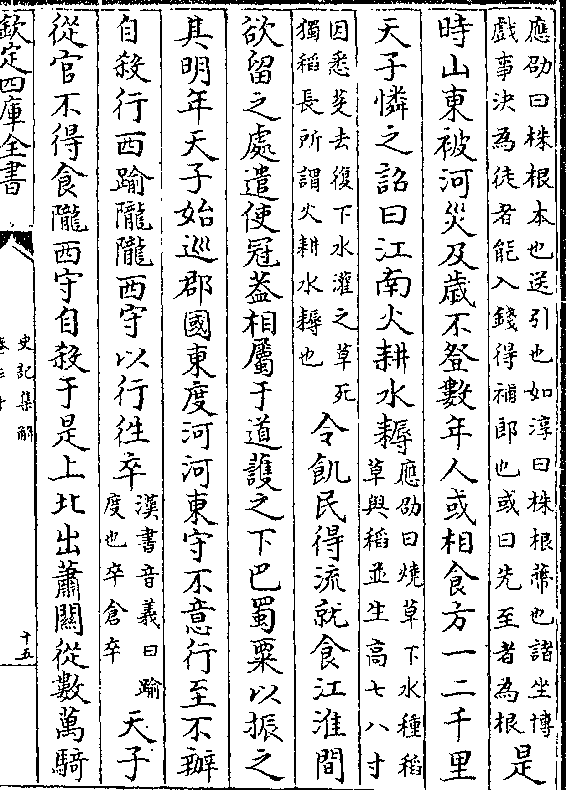 應劭曰株根本也送引也如淳曰株根蔕也諸坐博
戲事決為徒者能入錢得補郎也或曰先至者為根
是
時山東被河災及歳不登數年人或相食方一二千里
天子憐之詔曰江南火耕水耨
應劭曰燒草下水種稻
草與稻並生高七八寸
因悉芟去復下水灌之草死
獨稻長所謂火耕水耨也
令飢民得流就食江淮間
欲留之處遣使冠葢相屬于道護之下巴蜀粟以振之
其明年天子始巡郡國東度河河東守不意行至不辦
自殺行西踰隴隴西守以行徃卒
漢書音義曰踰
度也卒倉卒
天子
從官不得食隴西守自殺于是上北出蕭關從數萬騎
欽定四庫全書
史記集解
十五